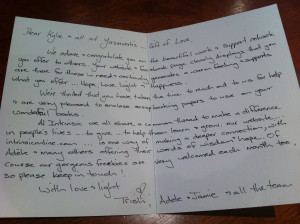 Dear Kylie & all at Yasmonatis - Gift of Love,
We adore & congratulate you on the beautiful work & support network
you offer to others. Your website & facebook page clearly displays that you
are there for those in needs & certainly generates a warm feeling & supports
what you offer... Hope Love Light & happiness
We're thrilled that you have taken the time to reach out to us for help
& are very pleased to enclose
wonderful books.
At Intrinsic we all share a common thread to make a difference
in people's lives... to give... to help them learn & grow. Our website
intrinsiconline.com ... is one way of making a deeper connection, with
Adele & many others offering their words of wisdom & hope. Of
course our gorgeous freebies are very welcomed each month too,
so please keep in touch!
With love & light
Trish, Adele & Jamie & all the team